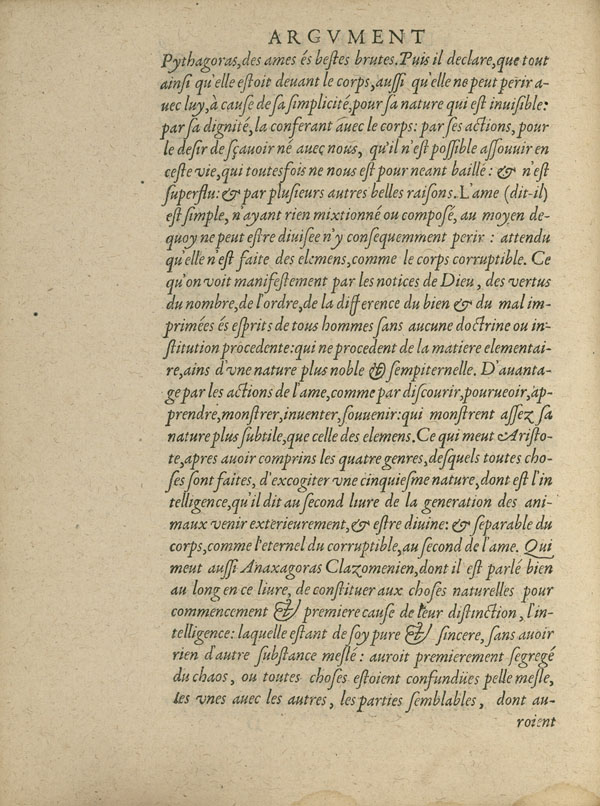 ARGVMENT
Pythagoras, des ames és bestes brutes. Puis il declare, que tout
ainsi qu'elle estoit deuant le corps, aussi qu'elle ne peut perir a-
uec luy, à cause de sa simplicité, pour sa nature qui est inuisible:
par sa dignité, la conferant auec le corps: par ses actions, pour
le desir de sçauoir né auec nous, qu'il n'est possible assouuir en
ceste vie, qui toutesfois ne nous est pour neant baillé: & n'est
superflu: & par plusieurs autres belles raisons. L'ame (dit-il)
est simple, n'ayant rien mixtionné ou composé, au moyen de-
quoy ne peut estre diuisee n'y consequemment perir: attendu
qu'elle n'est faite des elemens, comme le corps corruptible. Ce
qu'on voit manifestement par les notices de Dieu, des vertus
du nombre, de l'ordre, de la difference du bien & du mal im-
primées és esprits de tous hommes sans aucune doctrine ou in-
stitution procedente: qui ne procedent de la matiere elementai-
re, ains d'vne nature plus noble & sempiternelle. D'auanta-
ge par les actions de l'ame, comme par discourir, pourueoir, ap-
prendre, monstrer, inuenter, souuenir: qui monstrent assez sa
nature plus subtile, que celle des elemens. Ce qui meut Aristo-
te, apres auoir comprins les quatre genres, desquels toutes cho-
ses sont faites, d'excogiter vne cinquiesme nature, dont est l'in
telligence, qu'il dit au second liure de la generation des ani-
maux venir exterieurement, & estre diuine: & separable du
corps, comme l'eternel du corruptible, au second de l'ame. Qui
meut aussi Anaxagoras Clazomenien, dont il est parlé bien
au long en ce liure, de constituer aux choses naturelles pour
commencement & premiere cause de leur distinction, l'in-
telligence: laquelle estant de soy pure & sincere, sans auoir
rien d'autre substance meslé: auroit premierement segregé
du chaos, ou toutes choses estoient confundües pelle mesle,
les vnes auec les autres, les parties semblables, dont au-
roient